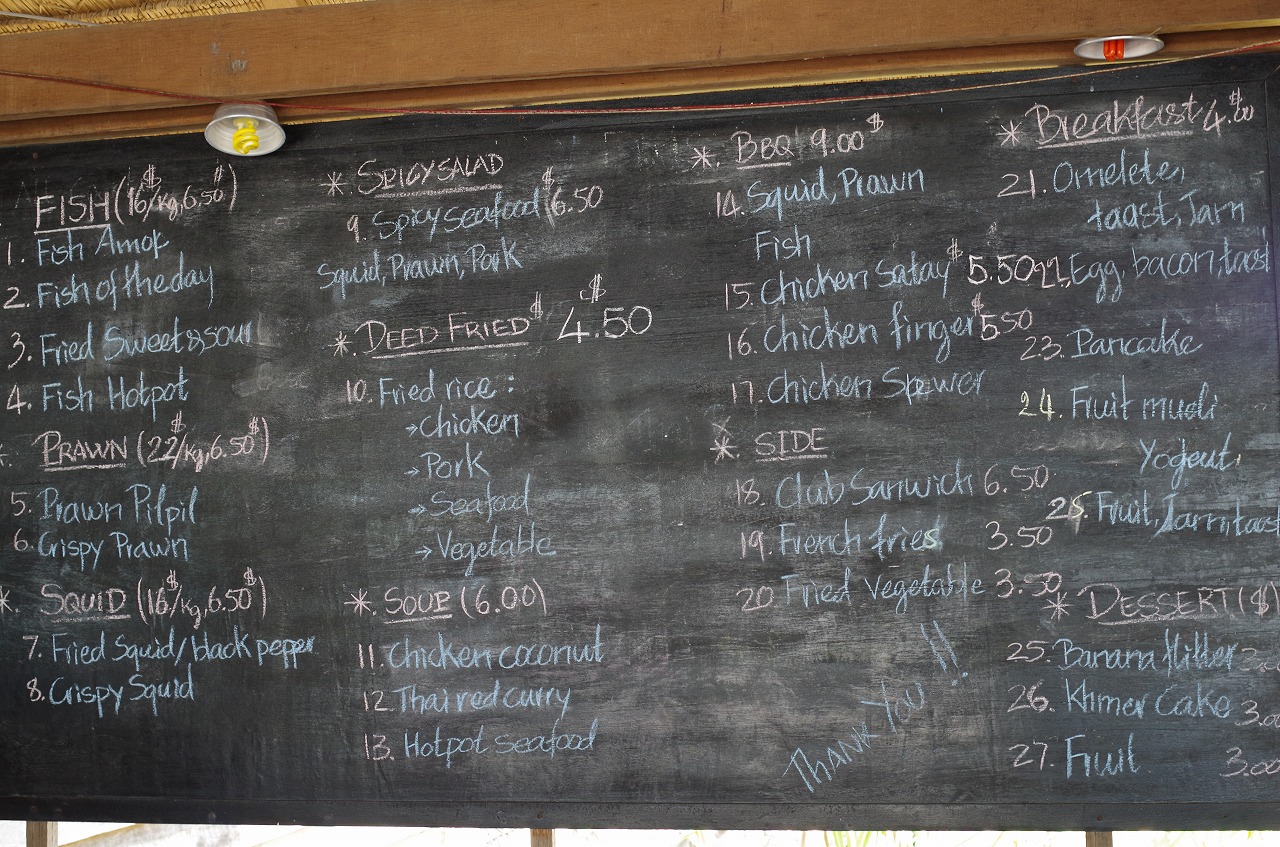 FISH (16$/kg, 6.50$)
1. Fish Amok
2. Fish of the day
3. Fried Sweet & sour
4. Fish Hotpot
*. PRAWN (22$/kg, 6.50$)
5. Prawn Pilpil
6. Crispy Prawn
*. SQUID (16$/kg, 6.50$)
7. Fried Squid/black pepper
8. Crispy Squid
*. SPICY SALAD
9. Spicy seafood $6.50
Squid, Prawn, Pork
*. DEED FRIED $4.50
10. Fried rice :
→Chicken
→Pork
→Seafood
→Vegetable
*. SOUP (6.00)
11. Chicken coconut
12. Thai red curry
13. Hotpot seafood
*. BBQ 9.00$
14. Squid, Prawn
Fish
15. Chicken Satay $5.50
16. Chicken finger $5.50
17. Chicken Spewer
* SIDE
18. Club Sanwich 6.50
19. French fries 3.50
20. Fried vegetable 3.50
THANK YOU !!
* Breakfast $4.00
21. Omelete,
taast, Jam
22, Egg, bacon, taast
23. Pancake
24. Fruit musli
Yogeut.
25. Fruit, Jam, taast
* DESSERT ($)
25. Banana flitter 3.00
26. Khmer Cake 3.00
27. Fruit 3.00